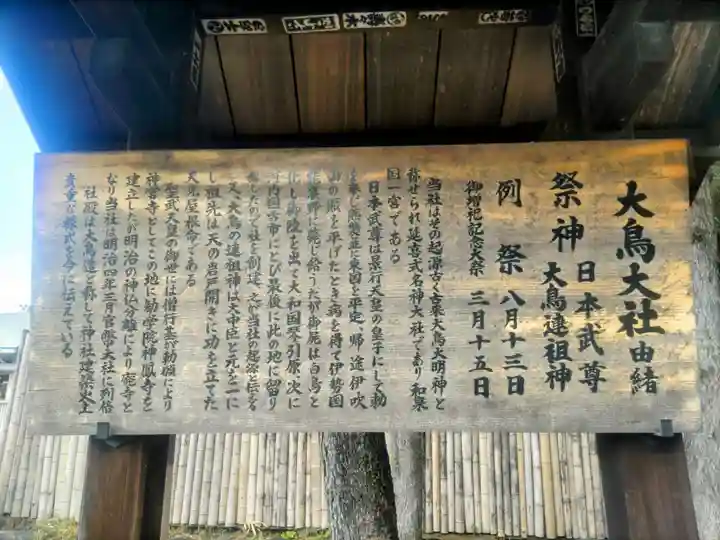 大鳥大社由緒
祭神 日本武尊
大鳥連祖神
例祭 八月十三日
御増祀記念大祭 三月十五日
当社はその起源古く古来大鳥大明神と
称せられ延喜式名神大社であり和泉
国一宮である
日本武尊は景行天皇の皇子にして勅
を奉じ熊襲並に東国を平定、帰途伊吹
山の賊を平げたとき病を得て伊勢国
能褒野に薨じ給うたが御屍は白鳥と
化し御陵を出て大和国琴引原、次に
河内国古市にとび最後に此の地に留り
社を創建、之が当社の起源と伝える
又、大鳥の連祖神は大中臣と元を一に
し祖先は天の岩戸開きに功を立てた
天児屋根命である
聖武天皇の御世には僧行基が勅願により
神宮寺としてこの地に勧学院神鳳寺を
建立したが明治の神仏分離により廃寺と
なり当社は明治四年三月官幣大社に列格
社殿は大鳥造と称して神社建築史上
貴重な様式を今に伝えている